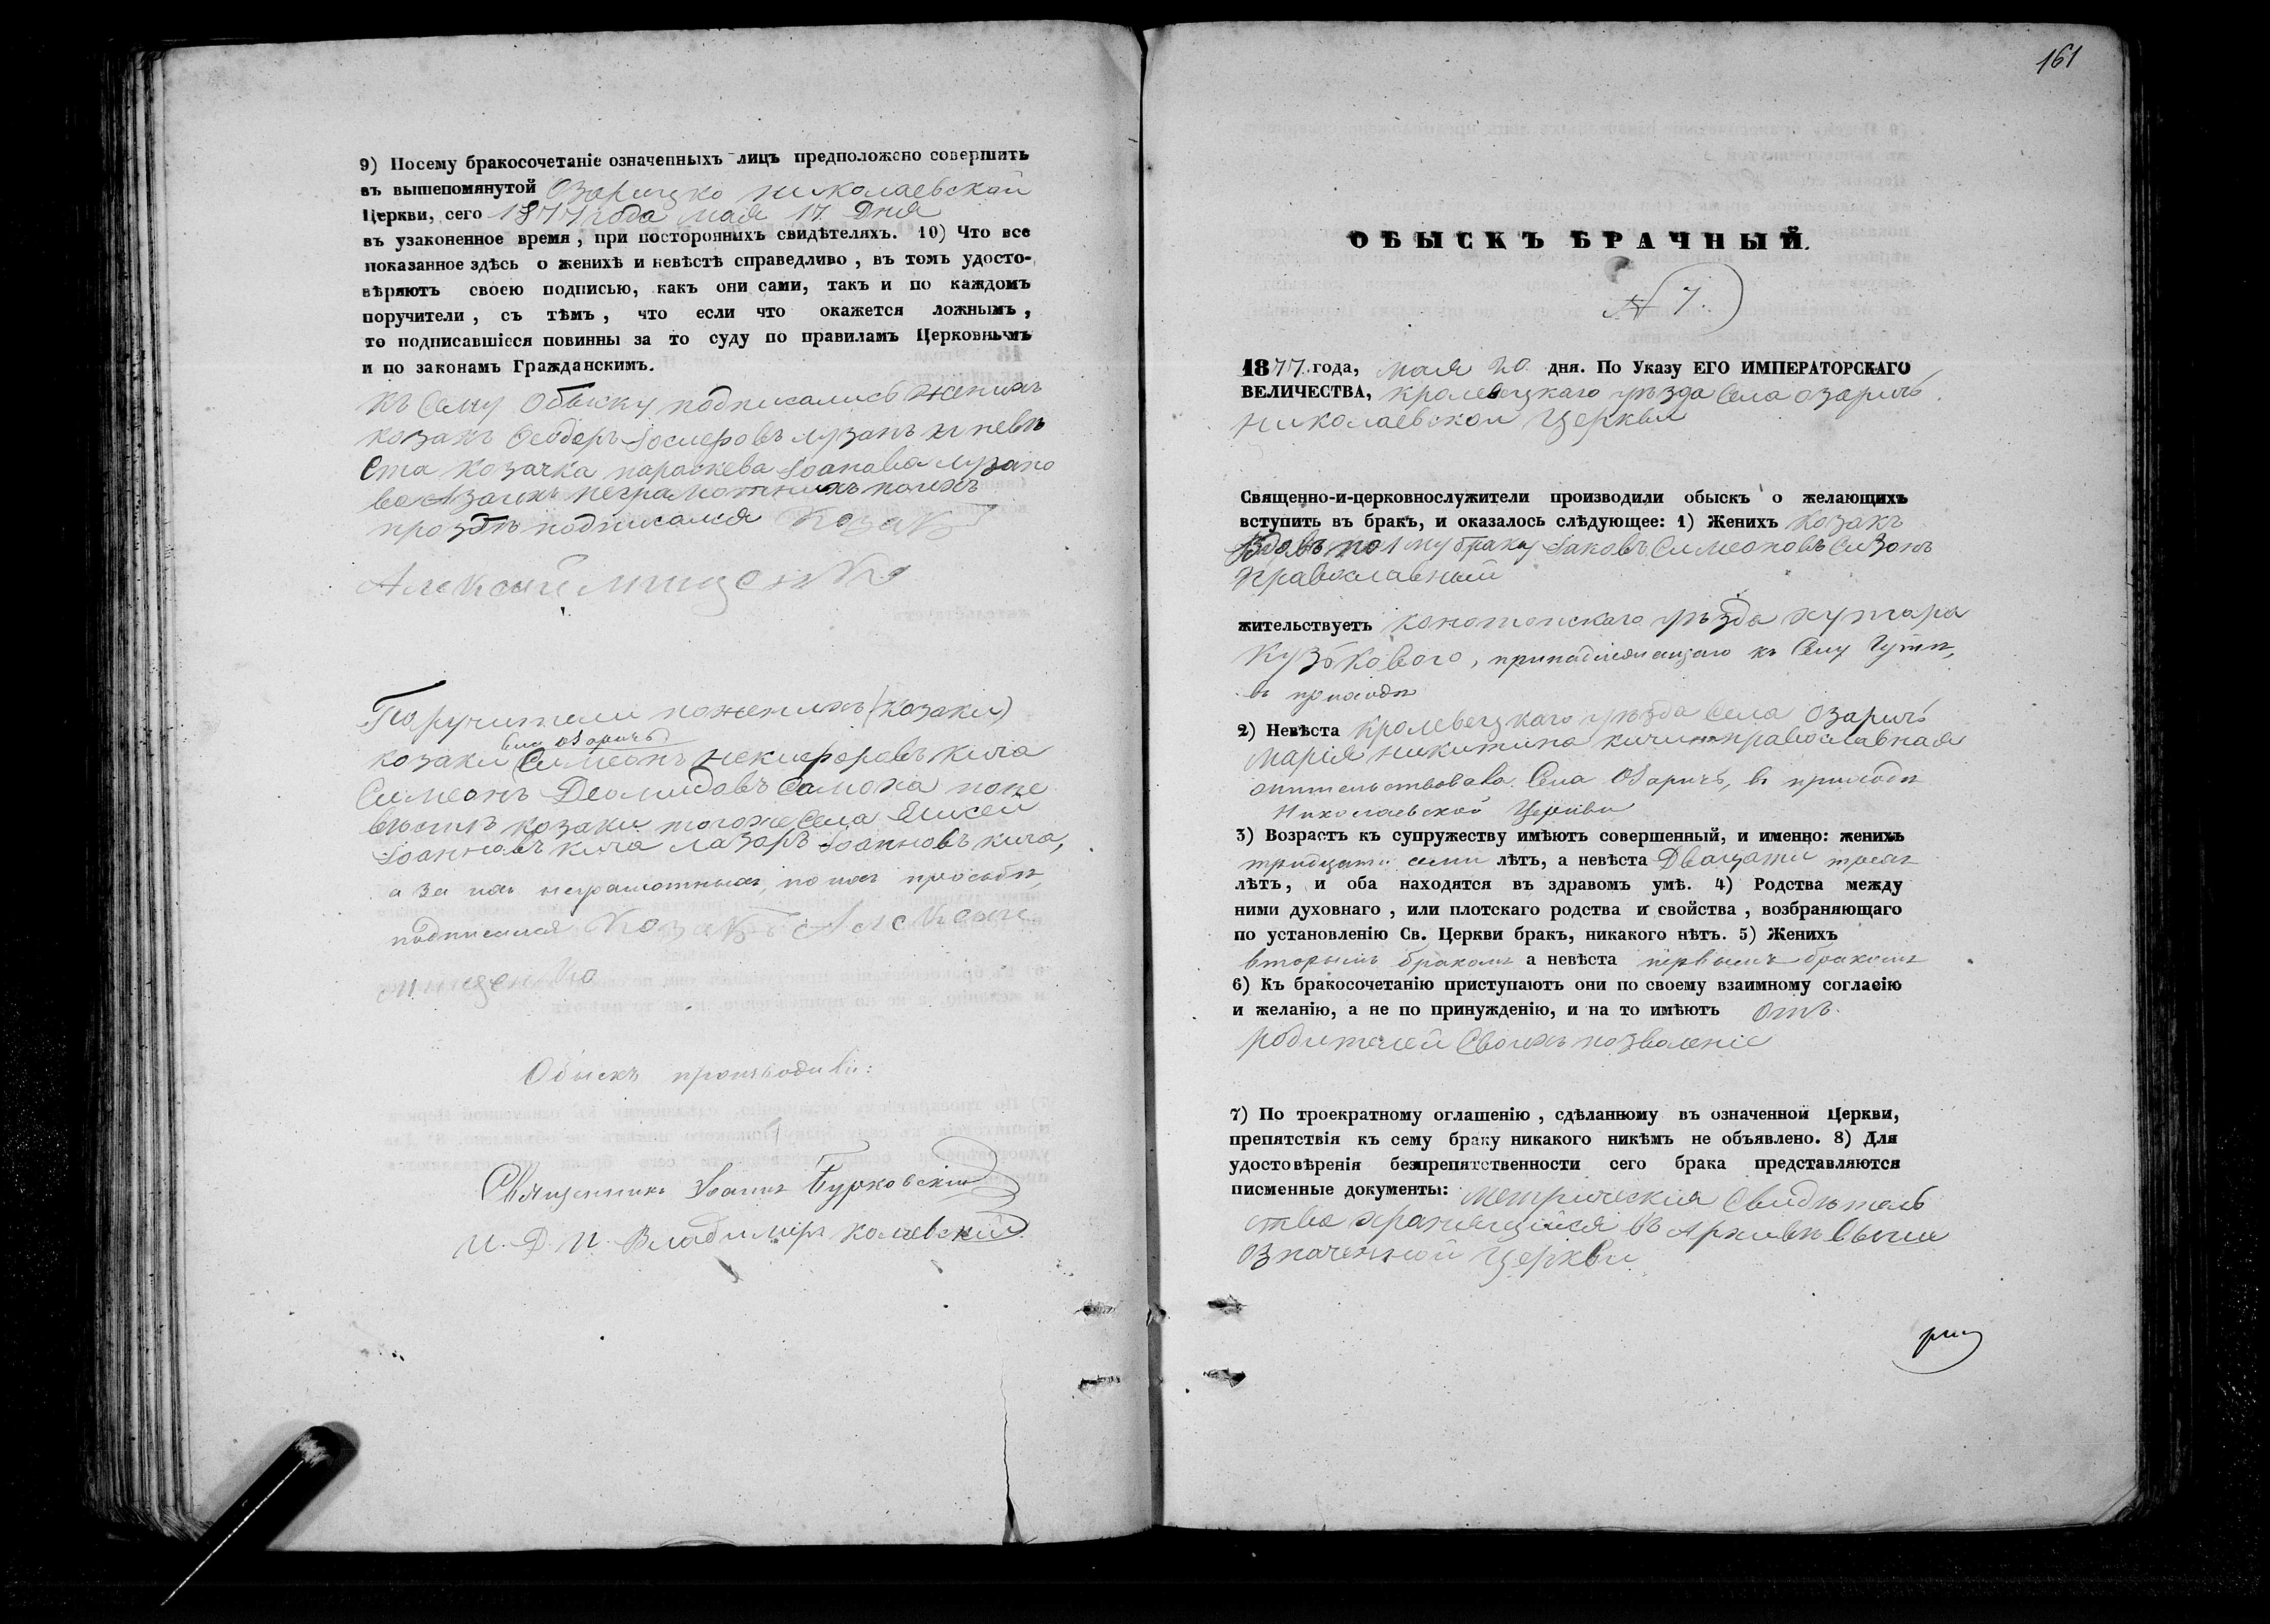 9) Посему бракосочетаніе означенныхъ лицъ предположено совершить
въ вышепомянутой Озарицко Николаевской
Церкви, сего 1877 года мая 17 дня
въ узаконенное время, при постороннихъ свидѣтеляхъ. 10) Что все
показанное здѣсь о женихѣ и невѣстѣ справедливо, въ томъ удосто-
вѣряютъ своею подписью, какъ они сами, такъ и по каждомъ
поручители, съ тѣмъ, что если что окажется ложнымъ,
то подписавшіеся повинны за то суду по правиламъ Церковнымъ
и по законамъ Гражданскимъ.
Къ Сему Обыску подписались женихъ
козакъ Ѳеодоръ Іосифовъ Лузанъ и невѣ
ста козачка Параскева
неграмотныхъ поихъ
прозбѣ подписался Козакъ
Алексей Мищенко
Поручители поженихѣ (козаки)
села Озаричъ
козаки Симеонъ Никифоровъ Кича
Симеонъ Деомидовъ Самоха поне
вѣстѣ козаки тогоже Села Елисей
Іоанновъ Кича Лазарь Іоанновъ Кича,
а за нихъ неграмотныхъ, по ихъ просьбѣ,
подписался Козакъ Алексей
Мищенко
Обыскъ производили:
Священникъ Іоаннъ Бурковскій
И. Д. П. Владиміръ
161
ОБЫСКЪ БРАЧНЫЙ.
№ 7.
1877 года, мая 20 дня. По Указу ЕГО ИМПЕРАТОРСКАГО
ВЕЛИЧЕСТВА, Кролевецкаго уѣзда Села Озаричъ
Николаевской Церкви
Священно-и-церковнослужители производили обыскъ о желающихъ
вступить въ бракъ, и оказалось слѣдующее: 1) Женихъ Козакъ
Вдовъ по 1му браку Іаковъ Симеоновъ Сизонъ
Православный
жительствуетъ Конотопскаго уѣзда хутора
Кузькового, принадлежащаго къ Селу Гутѣ,
въ приходѣ
2) Невѣста Кролевецкаго уѣзда Села Озаричъ
Марія Никитина православная
жительствовала Села Озаричъ, въ приходѣ
Николаевской Церкви
3) Возрастъ къ супружеству имѣютъ совершенный, и именно: женихъ
тридцати семи лѣтъ, а невѣста Двацати трехъ
лѣтъ, и оба находятся въ здравомъ умѣ. 4) Родства между
ними духовнаго, или плотскаго родства и свойства, возбраняющаго
по установленію Св. Церкви бракъ, никакого нѣтъ. 5) Женихъ
вторымъ бракомъ а невѣста первымъ бракомъ
6) Къ бракосочетанію приступаютъ они по своему взаимному согласію
и желанію, а не по принужденію, и на то имѣютъ отъ
родителей Своихъ позволеніе
7) По троекратному оглашенію, сдѣланному въ означенной Церкви,
препятствія къ сему браку никакого никѣмъ не объявлено. 8) Для
удостовѣренія безпрепятственности сего брака представляются
писменные документы: Метрическія Свидѣтель
ства хранящійся въ Архивѣ выше
означенной Церкви